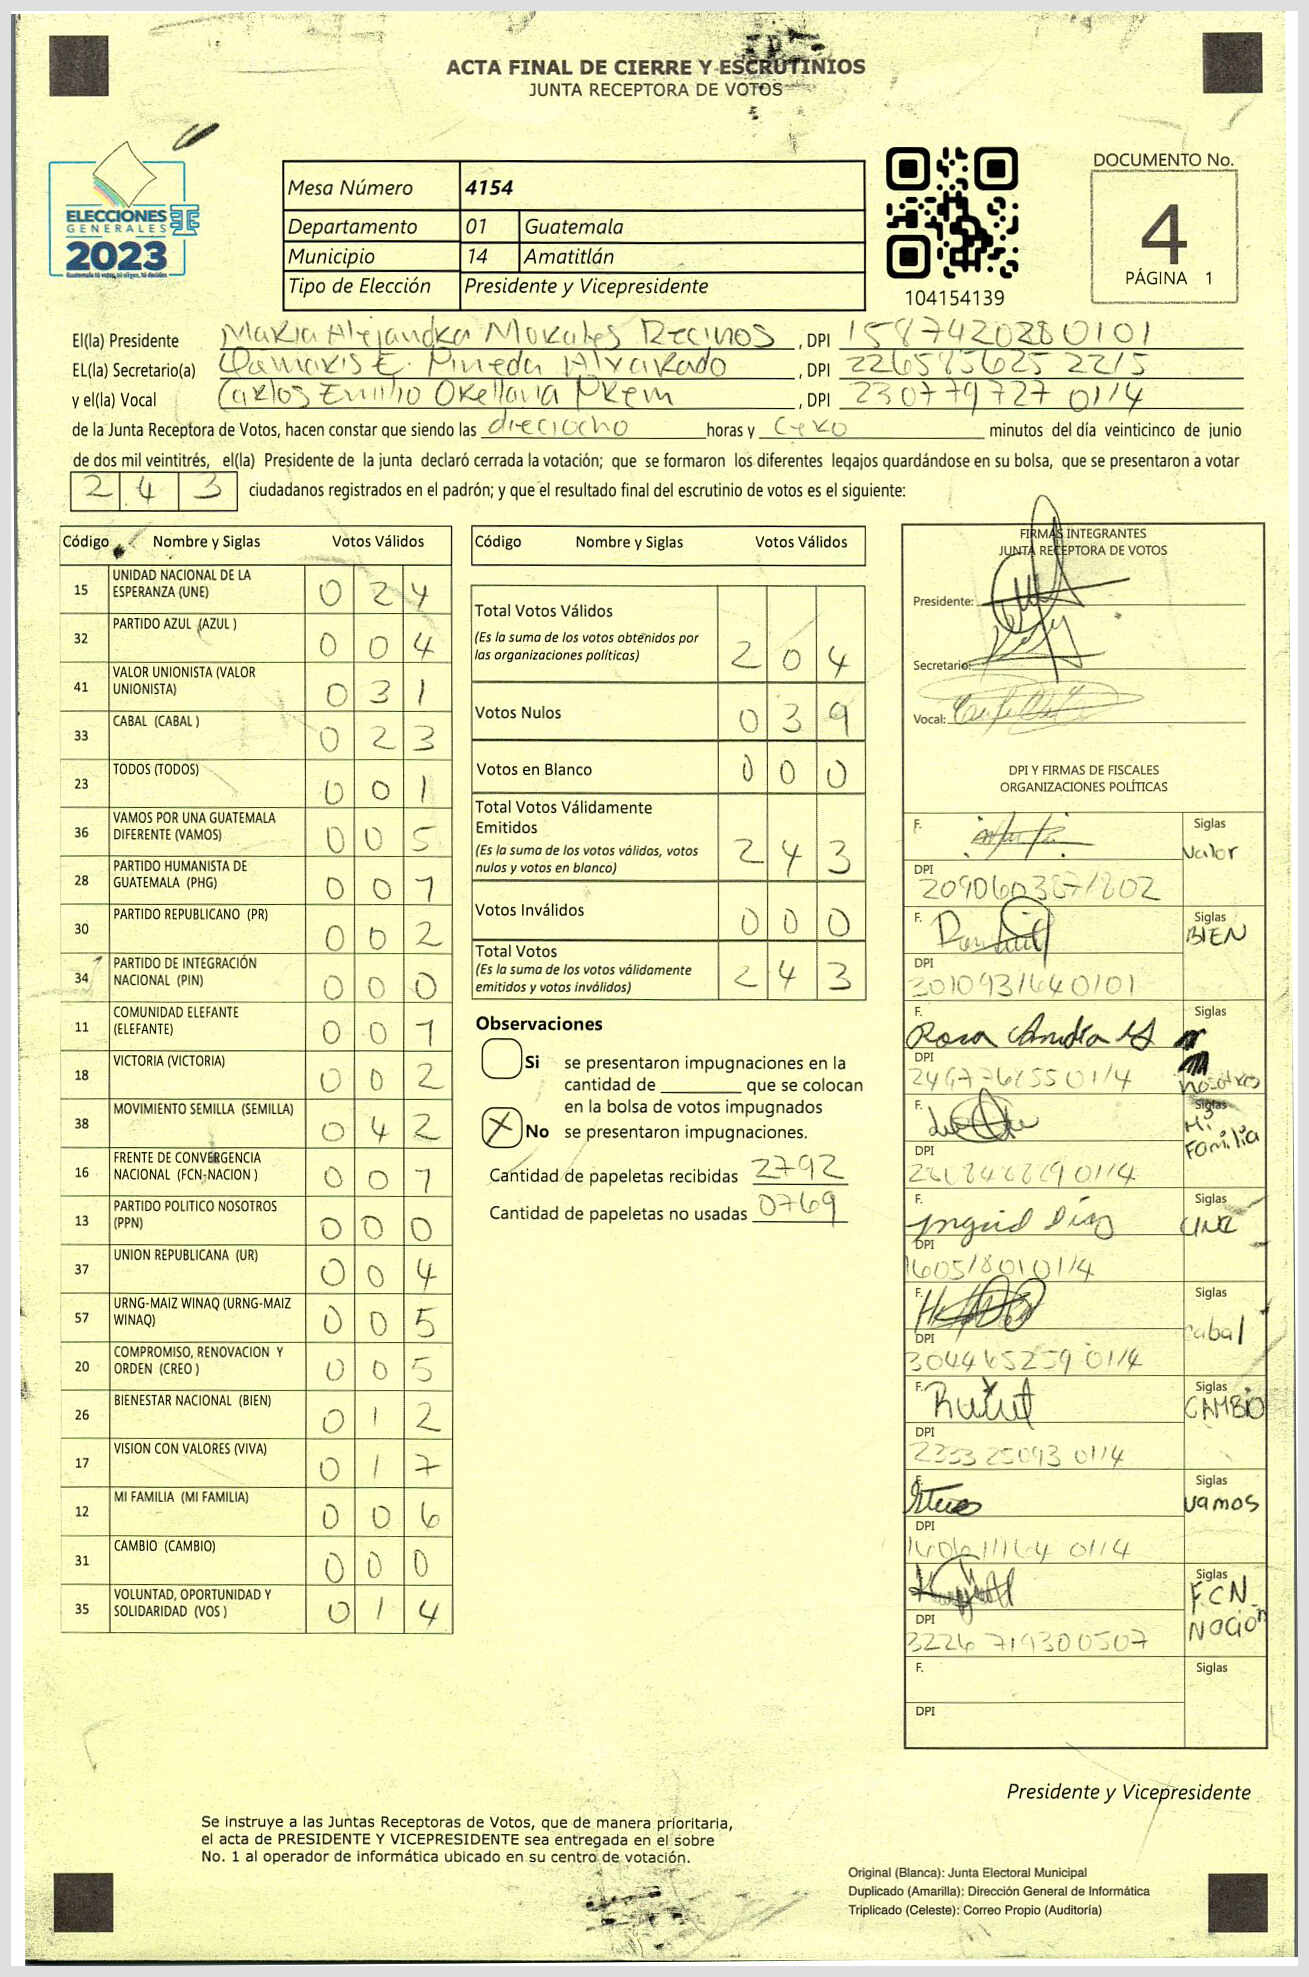 ACTA FINAL DE CIERRE Y ESCRUTINIOS
JUNTA RECEPTORA DE VOTOS
ELECCIONES
GENERALES
2023
Mesa Número 4154
Departamento 01 Guatemala
Municipio 14 Amatitlán
Tipo de Elección Presidente y Vicepresidente
104154139
DOCUMENTO No.
4
PÁGINA 1
El(la) Presidente Maria Alejandra Morales Recinos , DPI 1587420280101
EL(la) Secretario(a) Damaris E. Pineda Alvarado , DPI 226585625 2215
y el(la) Vocal Carlos Emilio Orellana Prem , DPI 230779727 0114
de la Junta Receptora de Votos, hacen constar que siendo las dieciocho horas y cero minutos del día veinticinco de junio
de dos mil veintitrés, el(la) Presidente de la junta declaró cerrada la votación; que se formaron los diferentes legajos guardándose en su bolsa, que se presentaron a votar
243 ciudadanos registrados en el padrón; y que el resultado final del escrutinio de votos es el siguiente:
Código Nombre y Siglas Votos Válidos
15 UNIDAD NACIONAL DE LA ESPERANZA (UNE) 024
32 PARTIDO AZUL (AZUL ) 004
41 VALOR UNIONISTA (VALOR UNIONISTA) 031
33 CABAL (CABAL ) 023
23 TODOS (TODOS) 001
36 VAMOS POR UNA GUATEMALA DIFERENTE (VAMOS) 005
28 PARTIDO HUMANISTA DE GUATEMALA (PHG) 007
30 PARTIDO REPUBLICANO (PR) 002
34 PARTIDO DE INTEGRACIÓN NACIONAL (PIN) 000
11 COMUNIDAD ELEFANTE (ELEFANTE) 001
18 VICTORIA (VICTORIA) 002
38 MOVIMIENTO SEMILLA (SEMILLA) 042
16 FRENTE DE CONVERGENCIA NACIONAL (FCN-NACION ) 001
13 PARTIDO POLITICO NOSOTROS (PPN) 000
37 UNION REPUBLICANA (UR) 004
57 URNG-MAIZ WINAQ (URNG-MAIZ WINAQ) 005
20 COMPROMISO, RENOVACION Y ORDEN (CREO ) 005
26 BIENESTAR NACIONAL (BIEN) 012
17 VISION CON VALORES (VIVA) 017
12 MI FAMILIA (MI FAMILIA) 006
31 CAMBIO (CAMBIO) 000
35 VOLUNTAD, OPORTUNIDAD Y SOLIDARIDAD (VOS ) 014
Código Nombre y Siglas Votos Válidos
Total Votos Válidos 204
(Es la suma de los votos obtenidos por
las organizaciones políticas)
Votos Nulos 039
Votos en Blanco 000
Total Votos Válidamente
Emitidos 243
(Es la suma de los votos válidos, votos
nulos y votos en blanco)
Votos Inválidos 000
Total Votos 243
(Es la suma de los votos válidamente
emitidos y votos inválidos)
Observaciones
Si se presentaron impugnaciones en la
cantidad de ________ que se colocan
en la bolsa de votos impugnados
X No se presentaron impugnaciones.
Cantidad de papeletas recibidas 2792
Cantidad de papeletas no usadas 0769
FIRMAS INTEGRANTES
JUNTA RECEPTORA DE VOTOS
Presidente:
Secretario:
Vocal:
DPI Y FIRMAS DE FISCALES
ORGANIZACIONES POLÍTICAS
F. Siglas Valor
DPI
F. Siglas BIEN
DPI 3010931640101
F. Siglas nosotros
DPI
F. Siglas Mi Familia
DPI
F. Ingrid Díaz Siglas UNE
DPI
F. Siglas cabal
DPI 304465259 0114
F. Siglas CAMBIO
DPI 2333 25093 0114
F. Siglas vamos
DPI
F. Siglas FCN Nación
DPI 3226 719300507
F. Siglas
DPI
Presidente y Vicepresidente
Se instruye a las Juntas Receptoras de Votos, que de manera prioritaria,
el acta de PRESIDENTE Y VICEPRESIDENTE sea entregada en el sobre
No. 1 al operador de informática ubicado en su centro de votación.
Original (Blanca): Junta Electoral Municipal
Duplicado (Amarilla): Dirección General de Informática
Triplicado (Celeste): Correo Propio (Auditoría)